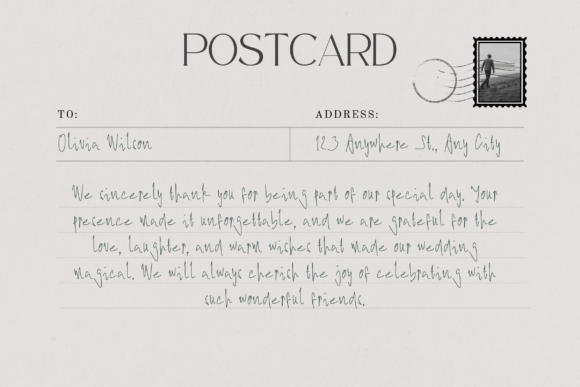 POSTCARD
TO:
ADDRESS:
Olivia Wilson
123 Anywhere St., Any City
We sincerely thank you for being part of our special day. Your
presence made it unforgettable, and we are grateful for the
love, laughter, and warm wishes that made our wedding
magical. We will always cherish the joy of celebrating with
such wonderful friends.